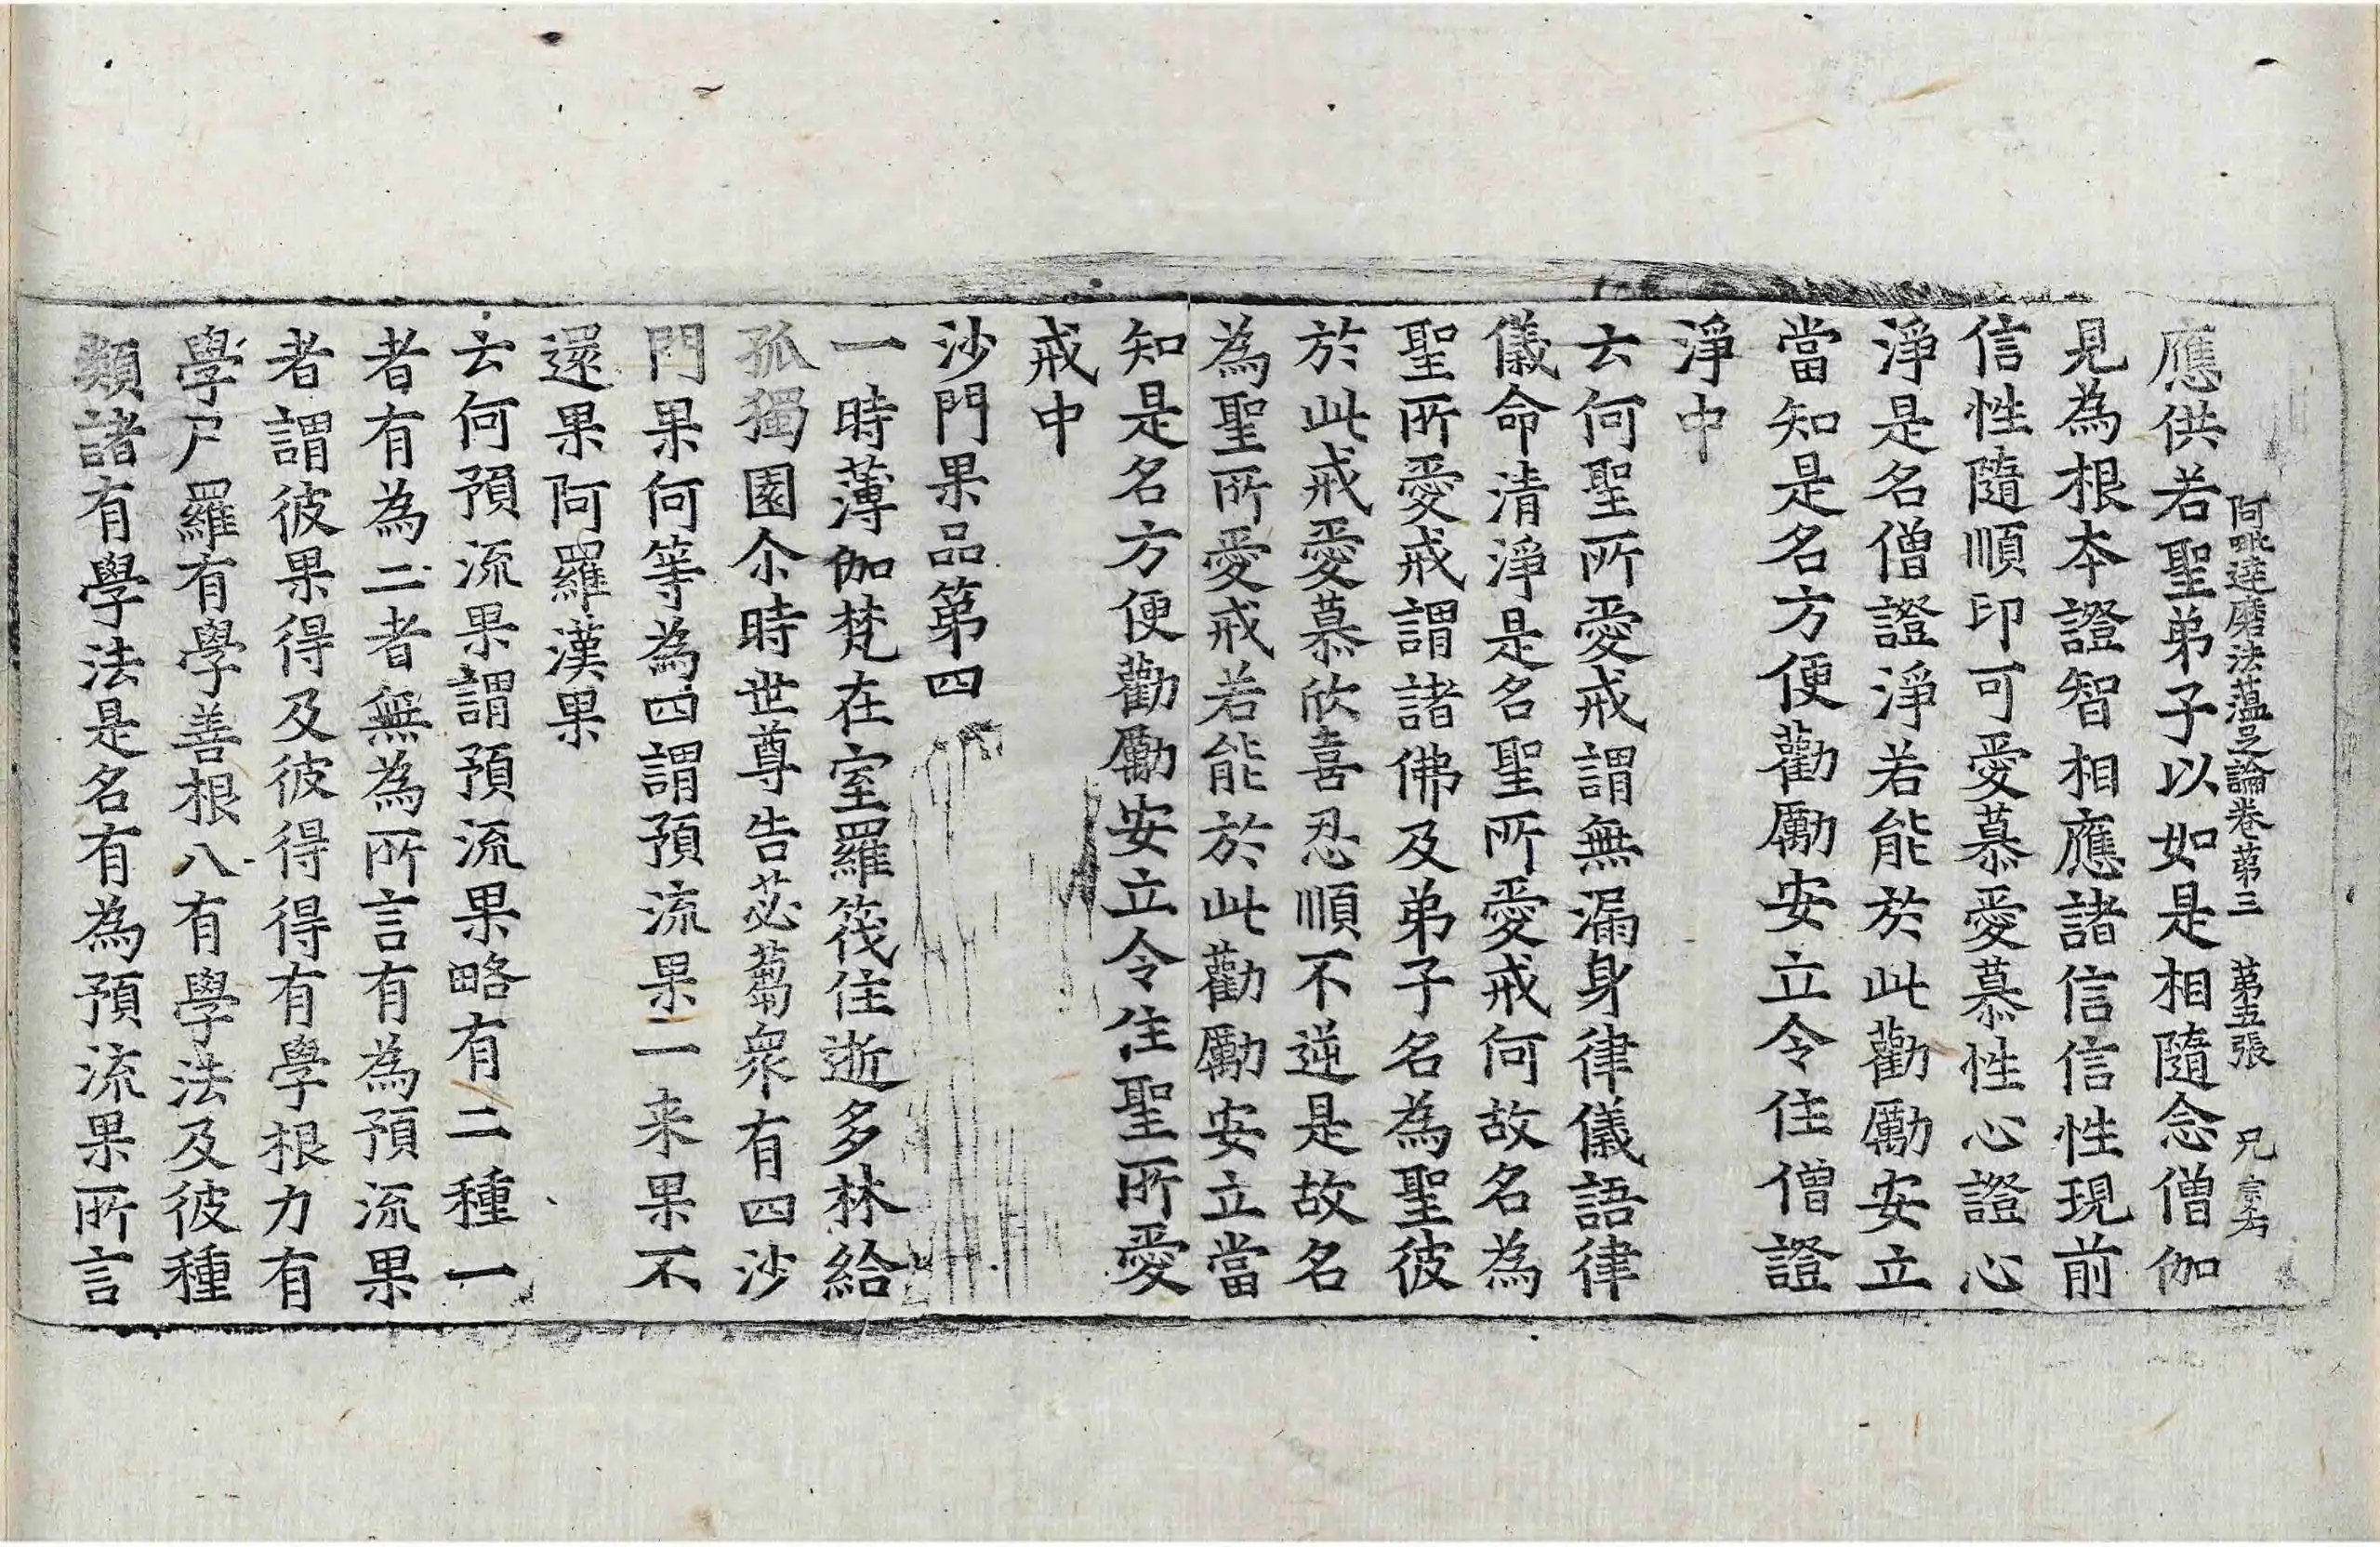 阿毗達磨法蘊足論卷第三 第五張 兄
應供若聖弟子以如是相隨念僧伽
見為根本證智相應諸信信性現前
信性隨順印可愛慕愛慕性心證心
淨是名僧證淨若能於此勸勵安立
當知是名方便勸勵安立令住僧證
淨中
云何聖所愛戒謂無漏身律儀語律
儀命清淨是名聖所愛戒何故名為
聖所愛戒謂諸佛及弟子名為聖彼
於此戒愛慕欣喜忍順不逆是故名
為聖所愛戒若能於此勸勵安立當
知是名方便勸勵安立令住聖所愛
戒中
沙門果品第四
一時薄伽梵在室羅筏住逝多林給
孤獨園尒時世尊告苾蒭衆有四沙
門果何等為四謂預流果一来果不
還果阿羅漢果
云何預流果謂預流果略有二種一
者有為二者無為所言有為預流果
者謂彼果得及彼得得有學根力有
學尸羅有學善根八有學法及彼種
類諸有學法是名有為預流果所言